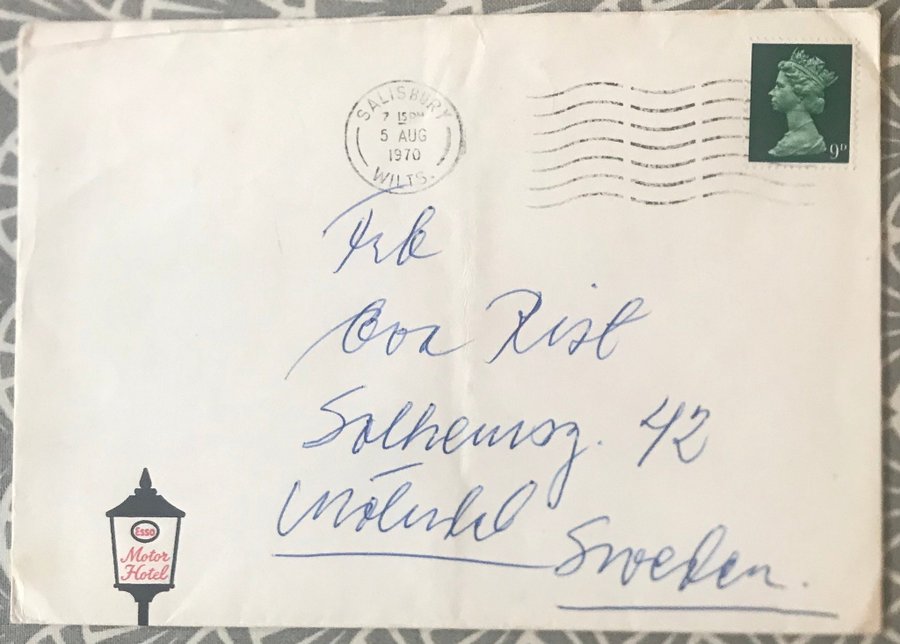 SALISBURY
7 15PM
5 AUG
1970
WILTS.
9D
Frk
Eva Rist
Solhemsg. 42
Mölndal
Sweden.
Esso
Motor
Hotel